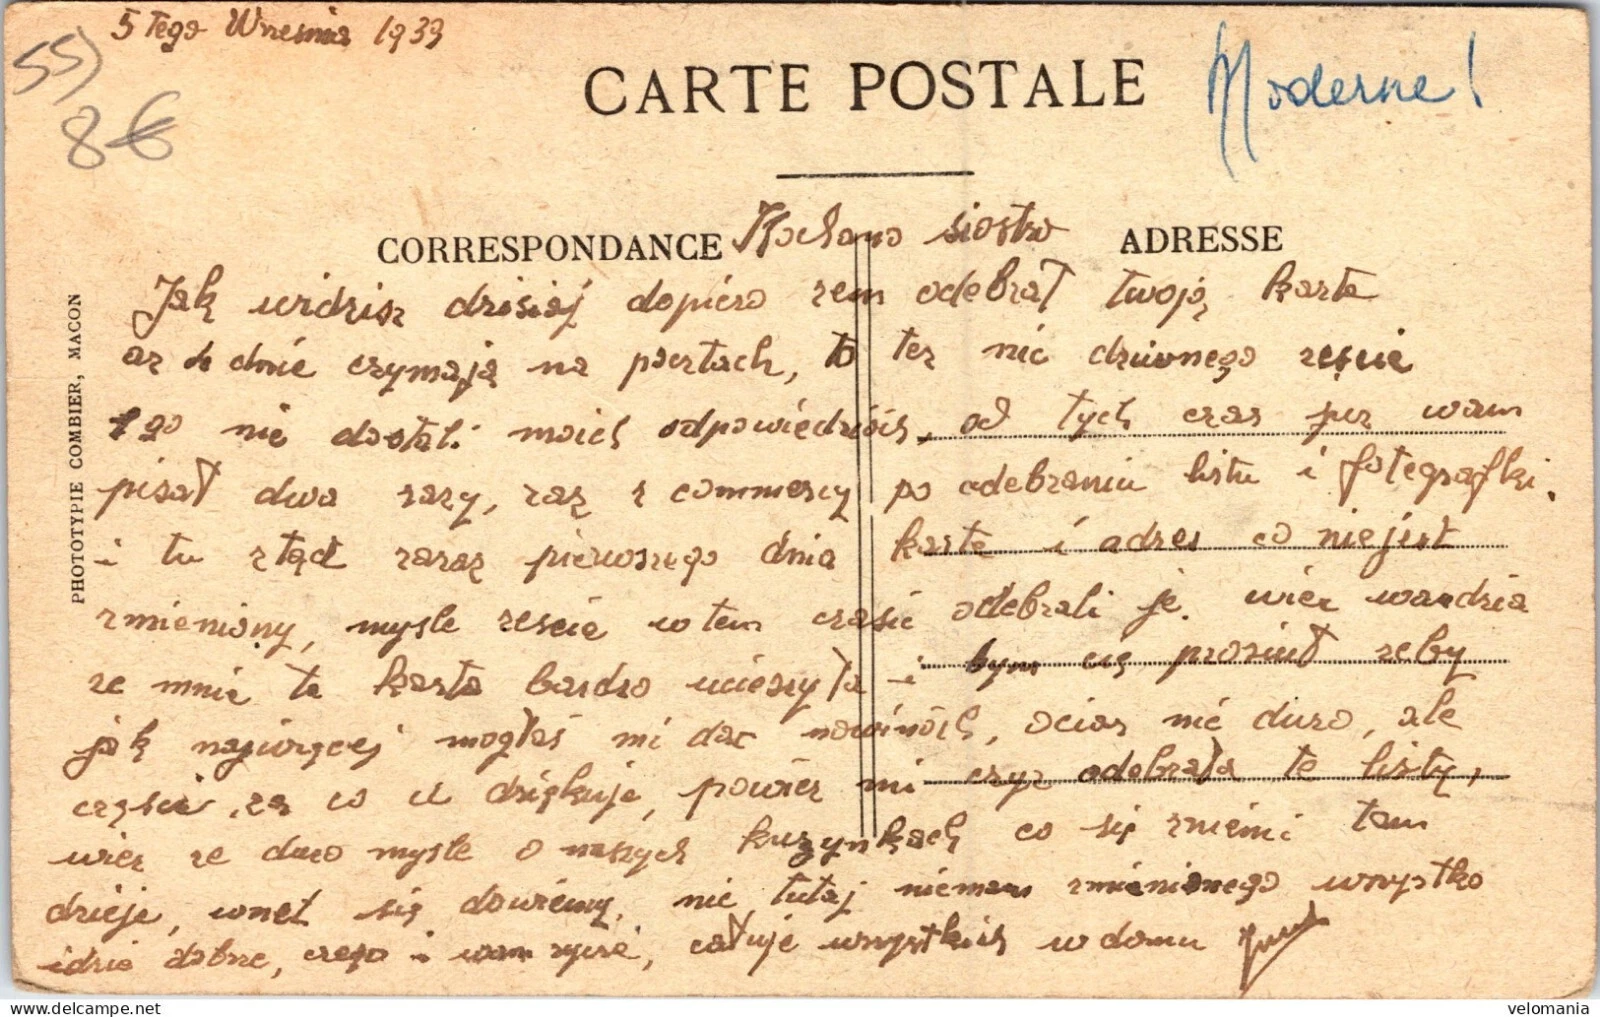 5 tego Wresnia 1939
55)
8€
Moderne!
CARTE POSTALE
CORRESPONDANCE
ADRESSE
PHOTOTYPIE COMBIER, MACON
Kochano siostro
Jak widzisz dzisiaj dopiero rem odebrał twoją karta
az dnie czymają na pocztach, to tez nic dziwnego zescie
go nie dostali moich odpowiedziòch, od tych czas juz wam
pisał dwa razy, raz z commercy po odebraniu listu i fotegrafki.
i tu ztąd zaraz pierwszego dnia karte i adres co niejest
zmieniony, mysle zescie w tem czasie odebrali je. wierz wandzia
ze mnie ta karta bardzo ucieszyła i bym cię prosiuł zeby
jak najwięcej mogłas mi dac nowinòch, ociaz nie duzo, ale
częsci, za co ci dziękuje, powiez mi czyz odebrała te listy,
wierz ze duzo mysle o naszych kuzynkach co się zniemi tam
dzieje, wnet się dowiemy, nic tutaj niemam zmienionego wszystko
idzie dobrze, czego i wam zycze, całuje wszystkich w domu
velomania